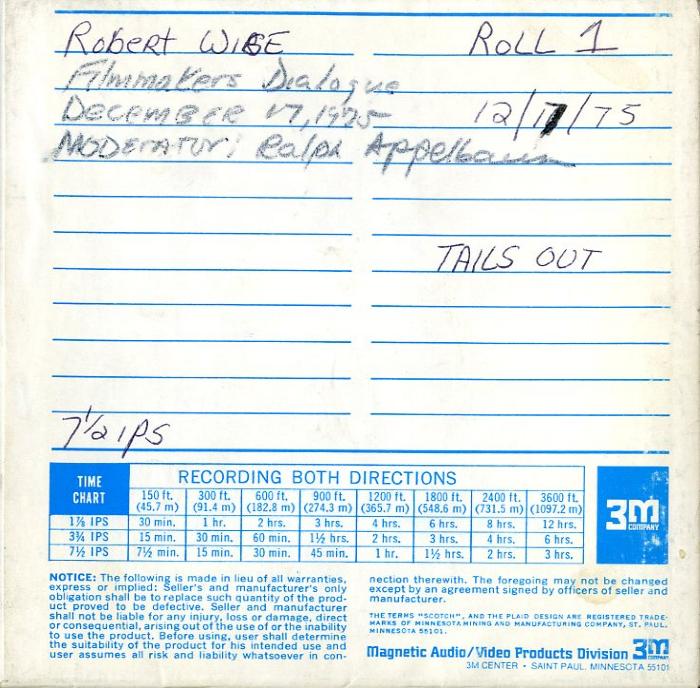 Robert WISE ROLL 1
Filmmakers Dialogue
December 17, 1975 12/17/75
MODERATOR; Ralph Appelbaum
TAILS OUT
7 1/2 IPS
TIME CHART
RECORDING BOTH DIRECTIONS
150 ft. (45.7 m) 300 ft. (91.4 m) 600 ft. (182.8 m) 900 ft. (274.3 m) 1200 ft. (365.7 m) 1800 ft. (548.6 m) 2400 ft. (731.5 m) 3600 ft. (1097.2 m)
1⅞ IPS 30 min. 1 hr. 2 hrs. 3 hrs. 4 hrs. 6 hrs. 8 hrs. 12 hrs.
3¾ IPS 15 min. 30 min. 60 min. 1½ hrs. 2 hrs. 3 hrs. 4 hrs. 6 hrs.
7½ IPS 7½ min. 15 min. 30 min. 45 min. 1 hr. 1½ hrs. 2 hrs. 3 hrs.
3M COMPANY
NOTICE: The following is made in lieu of all warranties,
express or implied: Seller's and manufacturer's only
obligation shall be to replace such quantity of the prod-
uct proved to be defective. Seller and manufacturer
shall not be liable for any injury, loss or damage, direct
or consequential, arising out of the use of or the inability
to use the product. Before using, user shall determine
the suitability of the product for his intended use and
user assumes all risk and liability whatsoever in con-
nection therewith. The foregoing may not be changed
except by an agreement signed by officers of seller and
manufacturer.
THE TERMS "SCOTCH", AND THE PLAID DESIGN ARE REGISTERED TRADE-
MARKS OF MINNESOTA MINING AND MANUFACTURING COMPANY, ST. PAUL,
MINNESOTA 55101.
Magnetic Audio/Video Products Division 3M COMPANY
3M CENTER • SAINT PAUL, MINNESOTA 55101